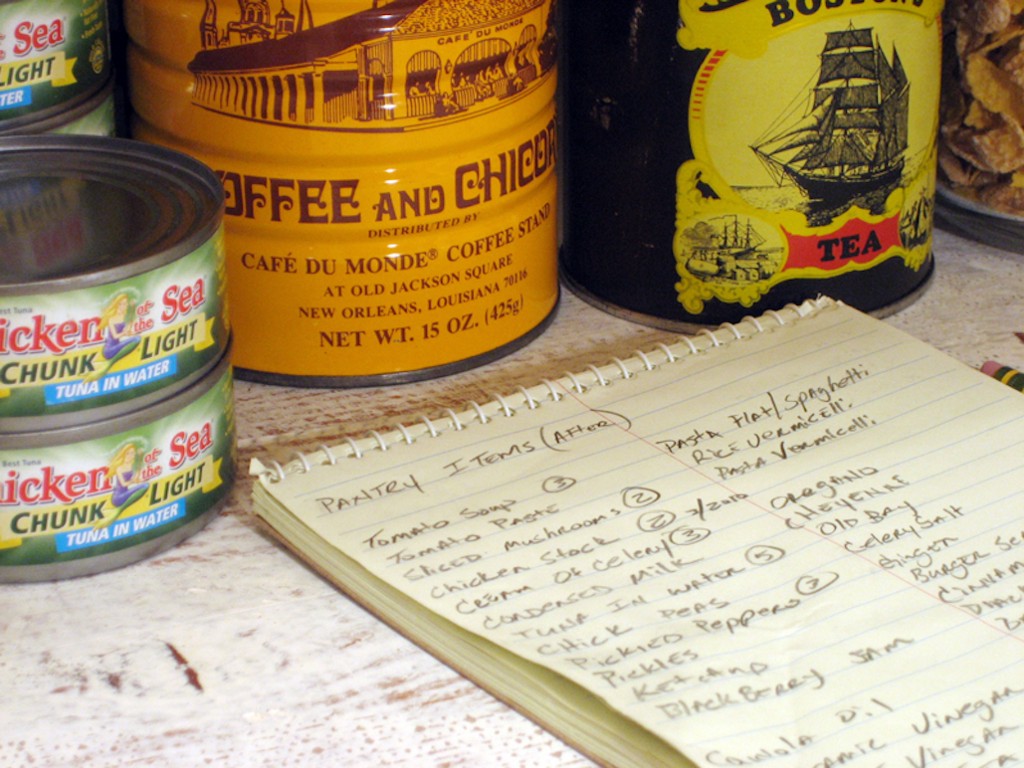 Sea
LIGHT
TER
Best Tuna
icken of the Sea
CHUNK LIGHT
TUNA IN WATER
Best Tuna
hicken of the Sea
CHUNK LIGHT
TUNA IN WATER
CAFE DU MONDE
OFFEE AND CHICOR
DISTRIBUTED BY
CAFÉ DU MONDE® COFFEE STAND
AT OLD JACKSON SQUARE
NEW ORLEANS, LOUISIANA 70116
NET WT. 15 OZ. (425g)
BOSTON'S
TEA
PANTRY ITEMS (AFTER)
TOMATO SOUP 3
TOMATO PASTE
SLICED MUSHROOMS 2
CHICKEN STOCK 2 7/2010
CREAM OF CELERY 3
CONDENSED MILK
TUNA IN WATER 5
CHICK PEAS
PICKLED PEPPERS 2
PICKLES
KETCHUP
BLACKBERRY JAM
CANOLA OIL
AMIC VINEGAR
VINEGAR
PASTA FLAT/SPAGHETTI
RICE VERMICELLI
PASTA VERMICELLI
OREGANO
CHEYENNE
OLD BAY
CELERY SALT
GINGER
BURGER SEA
CINNAM